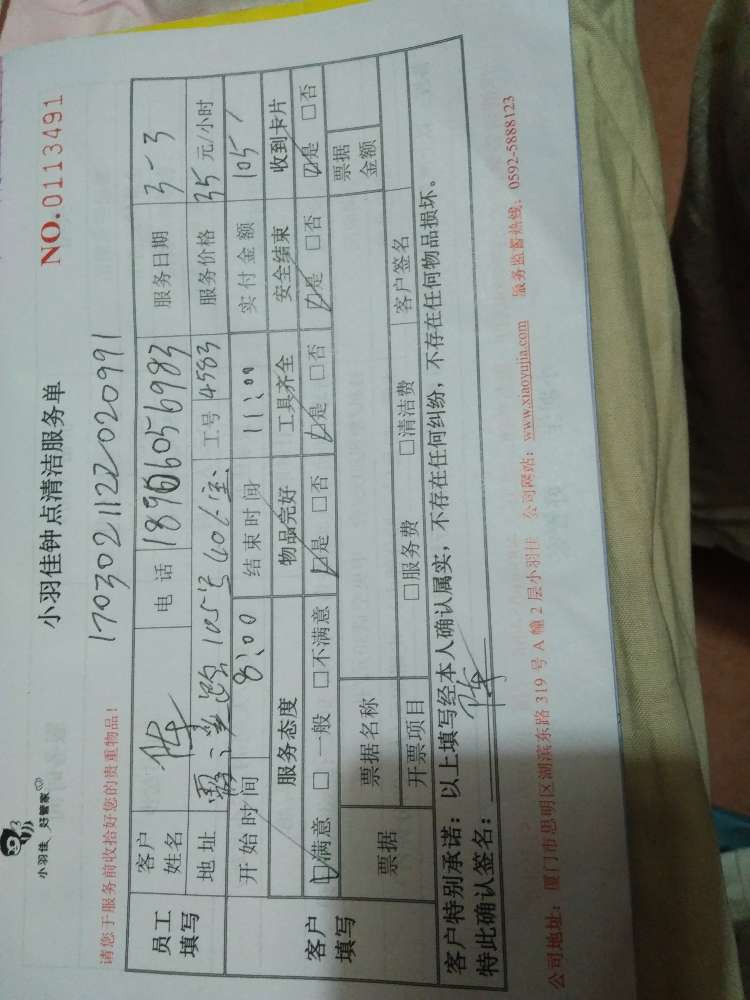 小羽佳 好管家
小羽佳钟点清洁服务单
NO.0113491
请您于服务前收拾好您的贵重物品!
1703021122020991
员工填写 客户姓名 陈 电话 18966056983 服务日期 3-3
地址 105号 工号 4583 服务价格 35元/小时
开始时间 8:00 结束时间 11:00 实付金额 105
客户填写 服务态度 物品完好 工具齐全 安全结束 收到卡片
☑满意 □一般 □不满意 ☑是 □否 ☑是 □否 ☑是 □否 ☑是 □否
票据 票据名称 票据金额
开票项目 □服务费 □清洁费 客户签名
客户特别承诺:以上填写经本人确认属实,不存在任何纠纷,不存在任何物品损坏。
特此确认签名: 陈
公司地址:厦门市思明区湖滨东路319号A幢2层小羽佳 公司网站:www.xiaoyujia.com 服务监督热线:0592-5888123